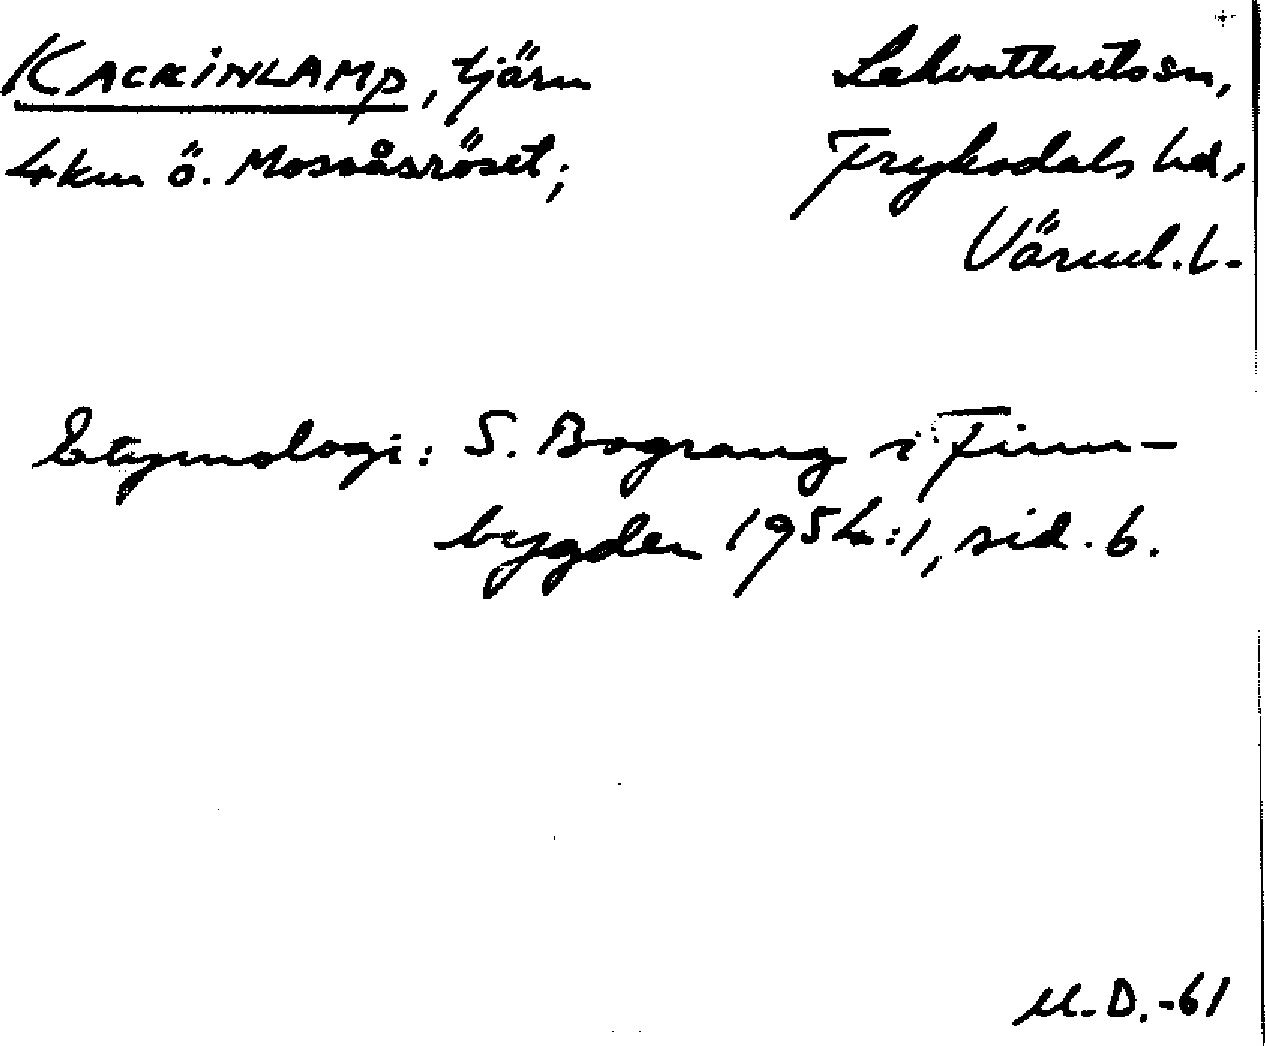 KACKINLAMP, tjärn
4 km ö. Mossåsröset;
Lekvattnets sn,
Fryksdals hd,
Värml. l.
Etymologi: S. Bograng i Finn-
bygden 1954:1, sid. 6.
M.D. -61